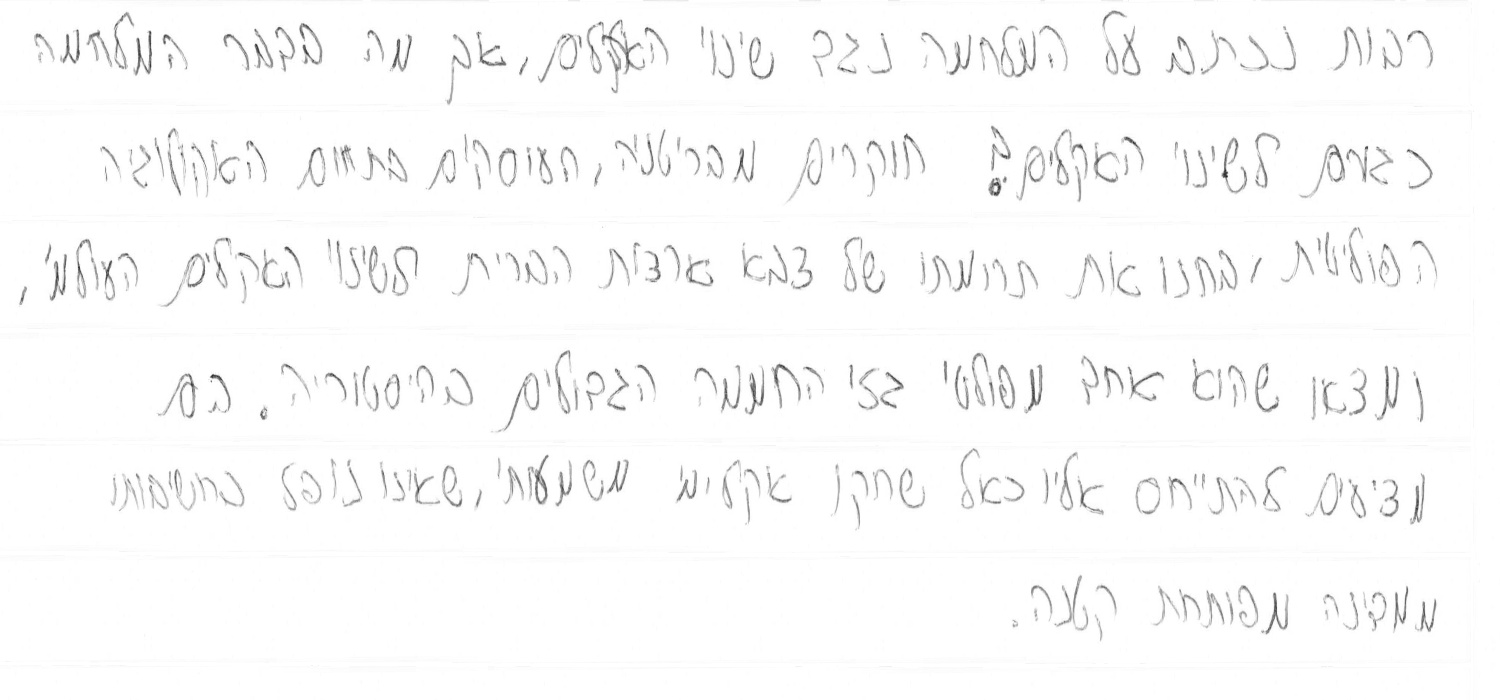 רבות נכתב על המלחמה נגד שינוי האקלים, אך מה בדבר המלחמה
כגורם לשינוי האקלים? חוקרים מבריטניה, העוסקים בתחום האקולוגיה
הפוליטית, בחנו את תרומתו של צבא ארצות הברית לשינוי האקלים העולמי,
ומצאו שהוא אחד מפולטי גזי החממה הגדולים בהיסטוריה. הם
מציעים להתייחס אליו כאל שחקן אקלימי משמעותי, שאינו נופל בחשיבותו
ממדינה מפותחת קטנה.